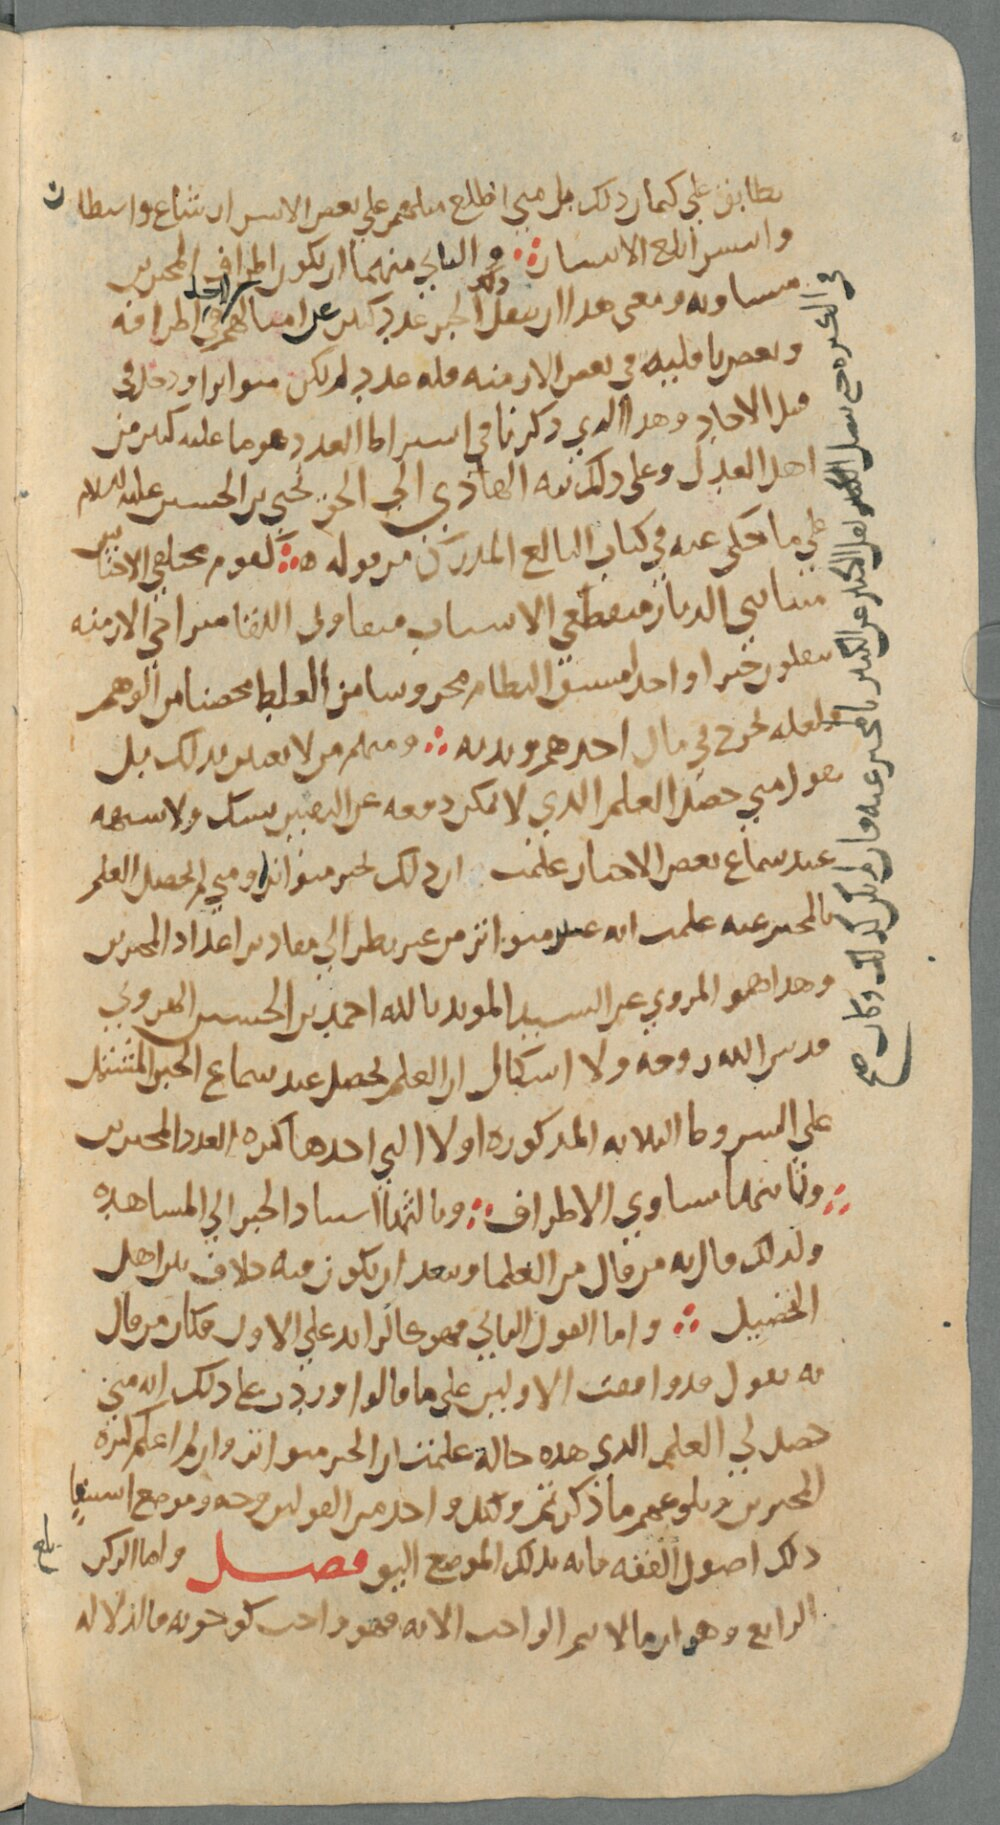 يطابق على كتمان ذلك بل متى اطلع مثلهم على بعض الاسرار شاع واستطار
وانتشر ابلغ الانتشار والثاني منهما ان يكون اطراف المخبرين
متساويه ومعنى هذا ان ينقل ذلك الخبر عدد كثير عن امثالهم في اطرافه
وبعض ناقليه في بعض الازمنه قله عدد لم يكن متواترا ودخل في
قبيل الاحاد وهذا الذي ذكرنا في اشتراط العدد هو ما عليه كثير من
اهل العدل وعلى ذلك نبه الهادي الى الحق يحيى بن الحسين عليه السلام
على ما حكى عنه في كتاب البالغ المدرك من قوله لقوم مختلفي الاخبار
متنائي الديار منقطعي الاسباب متفاوتي اللقا متراخي الازمنه
ينقلون خبرا واحدا متسق النظام محروسا من الغلط محصنا من الوهم
ولعله يخرج في مال احدهم وبدنه ومنهم من لا يعتبر بذلك بل
يقول متى حصل العلم الذي لا يمكن دفعه عن النفس بشك ولا شبهه
عند سماع بعض الاخبار علمت ان ذلك الخبر متواتر ومتى لم يحصل العلم
بالمخبر عنه علمت انه غير متواتر من غير نظر الى مقادير اعداد المخبرين
وهذا هو المروي عن السيد المويد بالله احمد بن الحسين الهاروني
قدس الله روحه ولا اشكال ان العلم يحصل عند سماع الخبر المشتمل
على الشروط الثلاثه المذكوره اولا التي احدها كثره العدد المخبرين
وثانيها تساوي الاطراف وثالثها استناد الخبر الى المشاهده
ولذلك قال به من قال من العلما ويبعد ان يكون فيه خلاف بين اهل
التحصيل واما القول الثاني فهو كالزائد على الاول فكان من قال
به يقول قد وافقت الاولين على ما قالوا وزدت على ذلك انه متى
حصل لي العلم الذي هذه حاله علمت ان الخبر متواتر وان لم اعلم كثره
المخبرين وبلوغهم ما ذكرتم ولكل واحد من القولين وجه وموضع استيفا
ذلك اصول الفقه فانه بذلك الموضع اليق فصل واما الركن
الرابع وهو ان ما لا يتم الواجب الا به فهو واجب كوجوبه فالدلاله
في الكثره حتى يتصل النقل بنقل الكثير عن الكثير بالمخبر عنه فان لم يكن كذلك وكان صح
بلغ